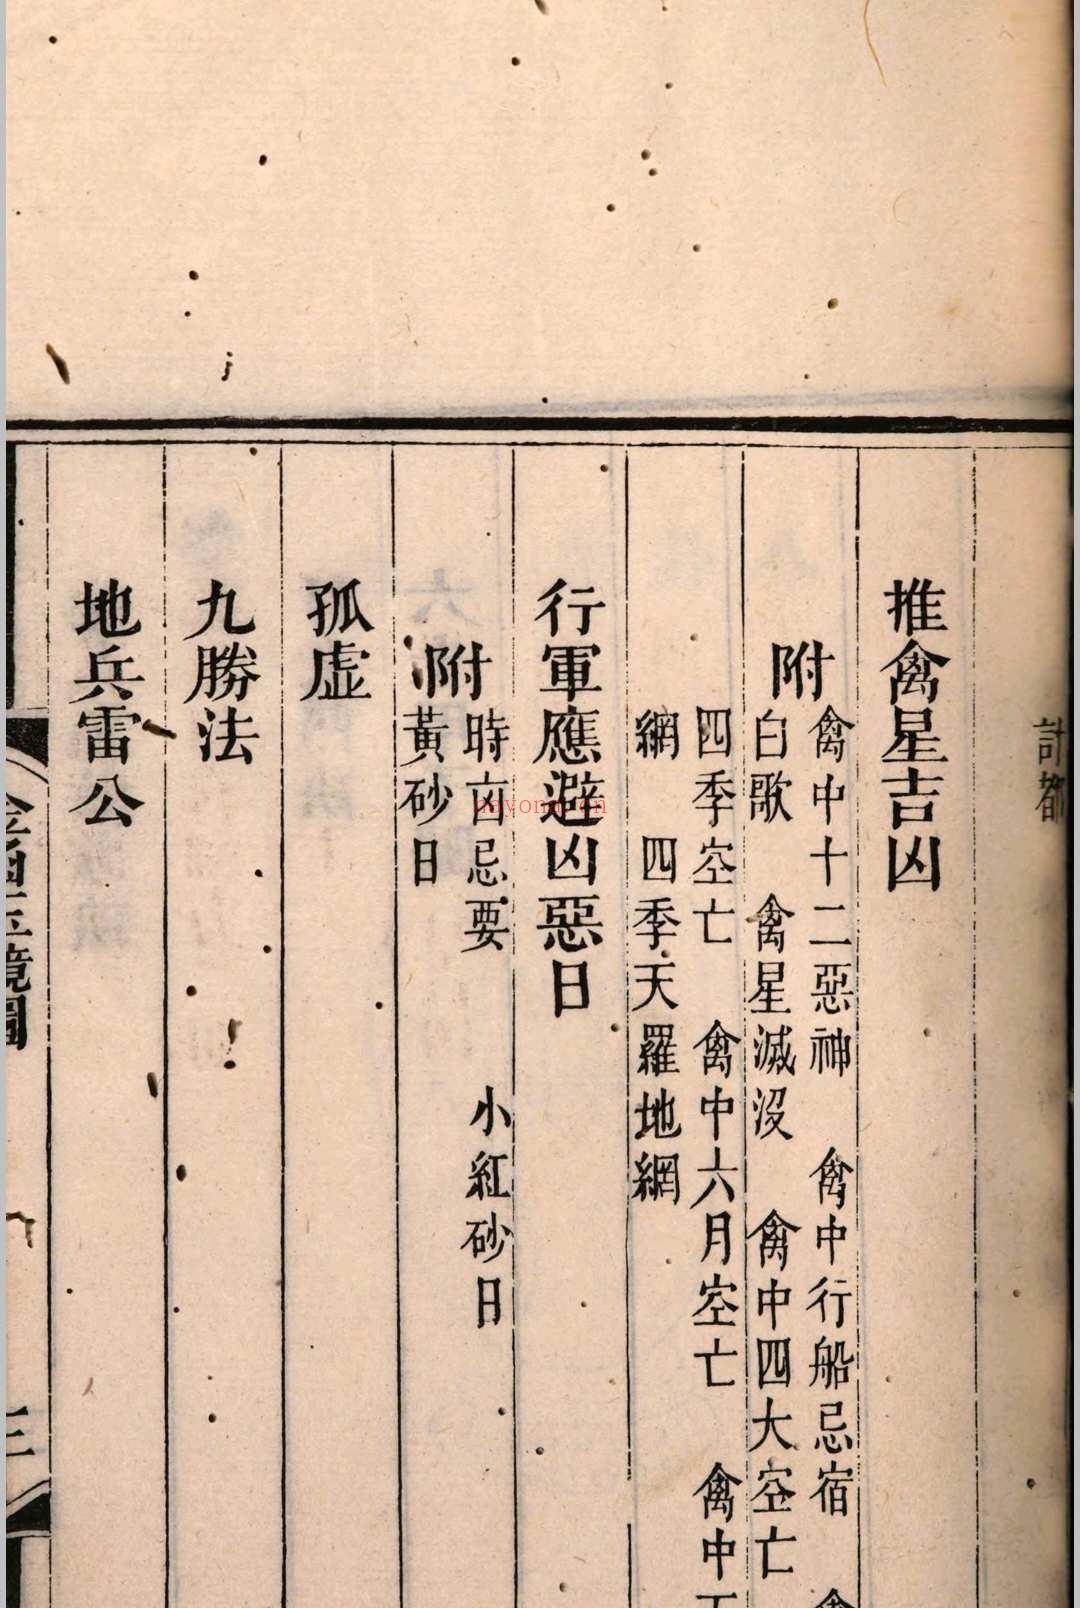 計都
推禽星吉凶
附
禽中十二惡神　禽中行船忌宿
白歌　禽星滅没　禽中四大空亡
四季空亡　禽中六月空亡　禽中
網　四季天羅地網
行軍應避凶惡日
附
時卣忌要　　小紅砂日
黃砂日
孤虛
九勝法
地兵雷公
鏡圖
三
nayona.cn